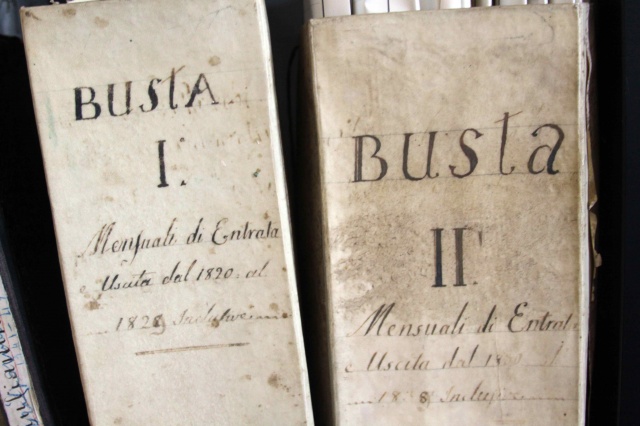 BUSTA
I.
Mensuali di Entrata
e Uscita dal 1820. al
1828 Inclusive
BUSTA
II
Mensuali di Entrata
e Uscita dal